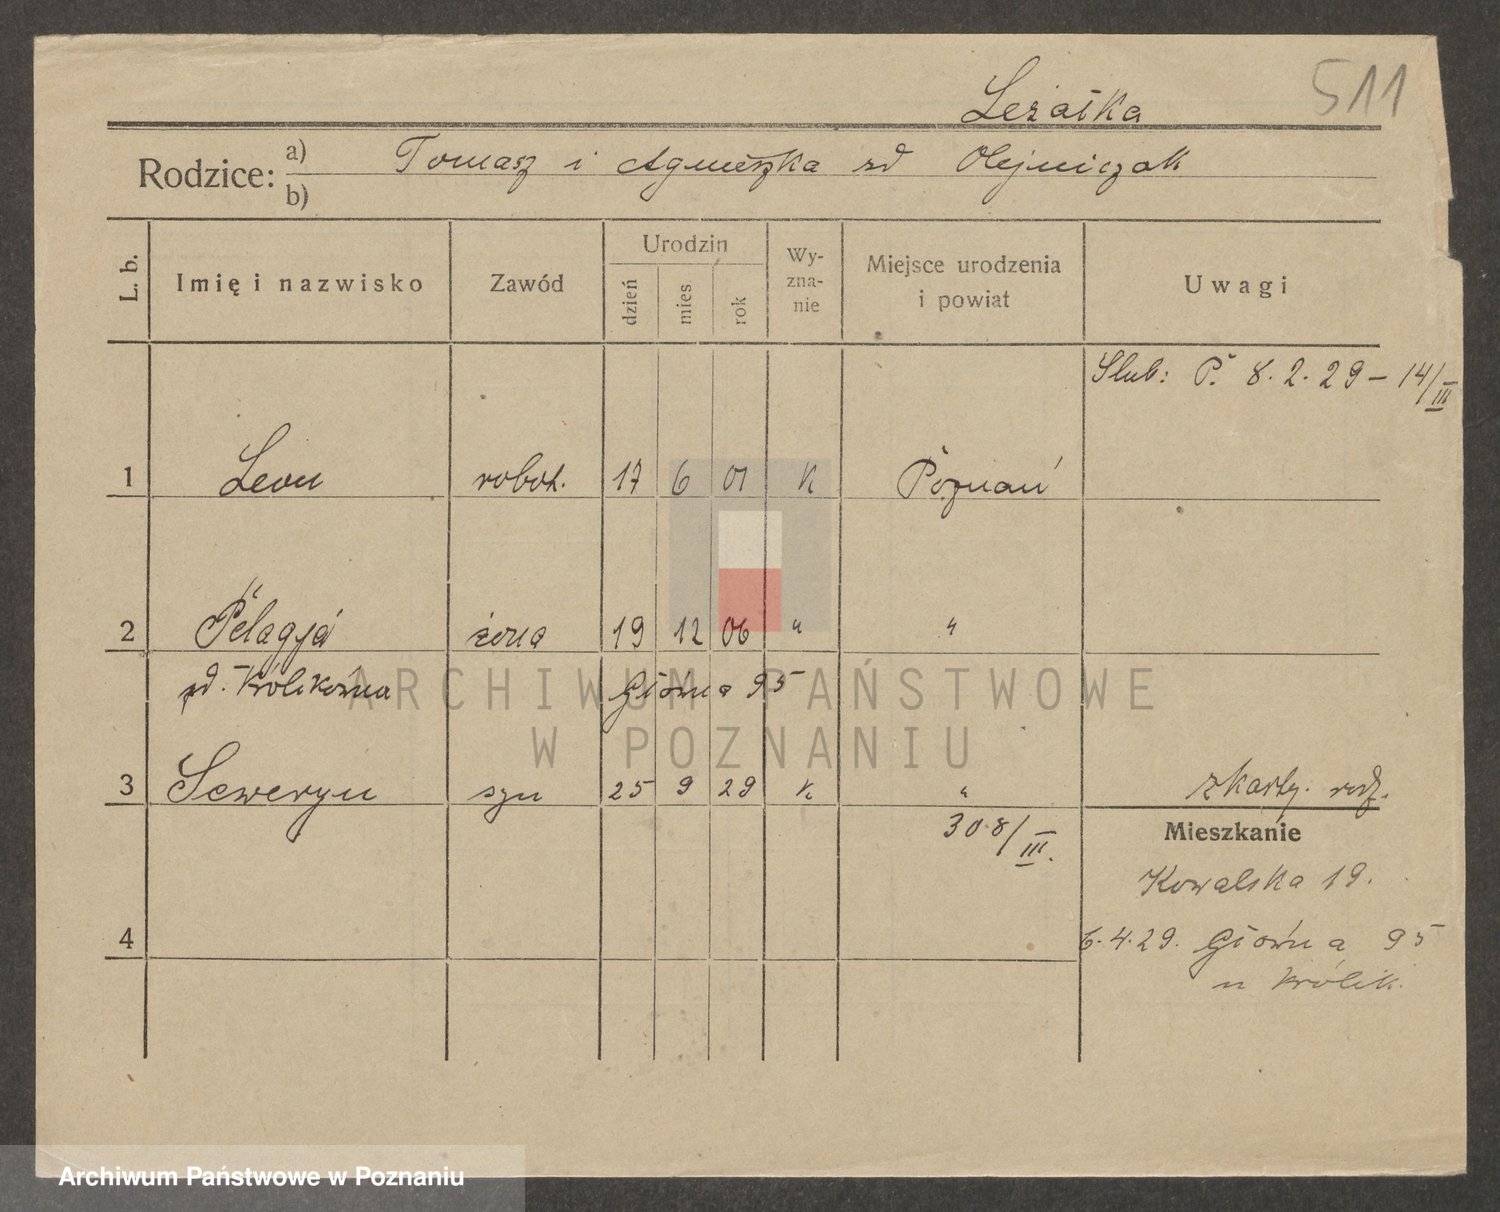 511
Leżałka
Rodzice: a) Tomasz i Agnieszka zd Olejniczak
b)
L. b. Imię i nazwisko Zawód Urodzin dzień mies rok Wy-zna-nie Miejsce urodzenia i powiat Uwagi
Ślub: P. 8.2.29 – 14/III
1 Leon robot. 17 6 01 K Poznań
2 Pelagja żona 19 12 06 " "
zd. Królikówna Główna 95
ARCHIWUM PAŃSTWOWE
W POZNANIU
3 Seweryn syn 25 9 29 K " z karty. rodz.
308/III.
Mieszkanie
Kowalska 19.
4
6.4.29. Główna 95
u Królik.
Archiwum Państwowe w Poznaniu